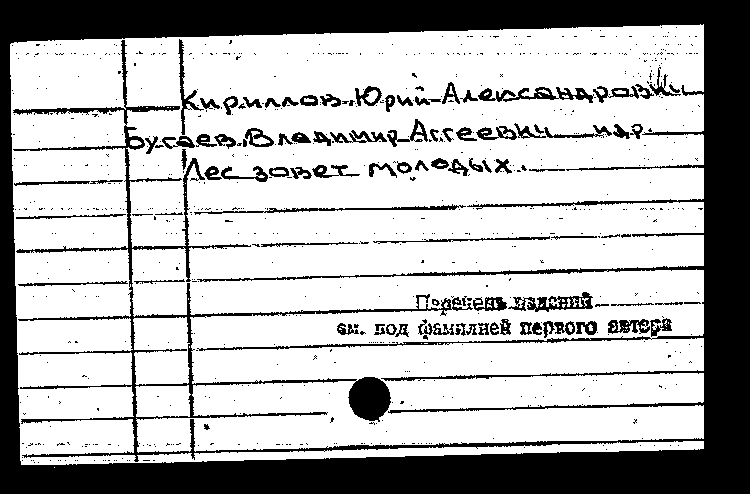 Кириллов, Юрий Александрович
Бугаев, Владимир Аггеевич и др.
Лес зовет молодых.
Перечень изданий
см. под фамилией первого автора